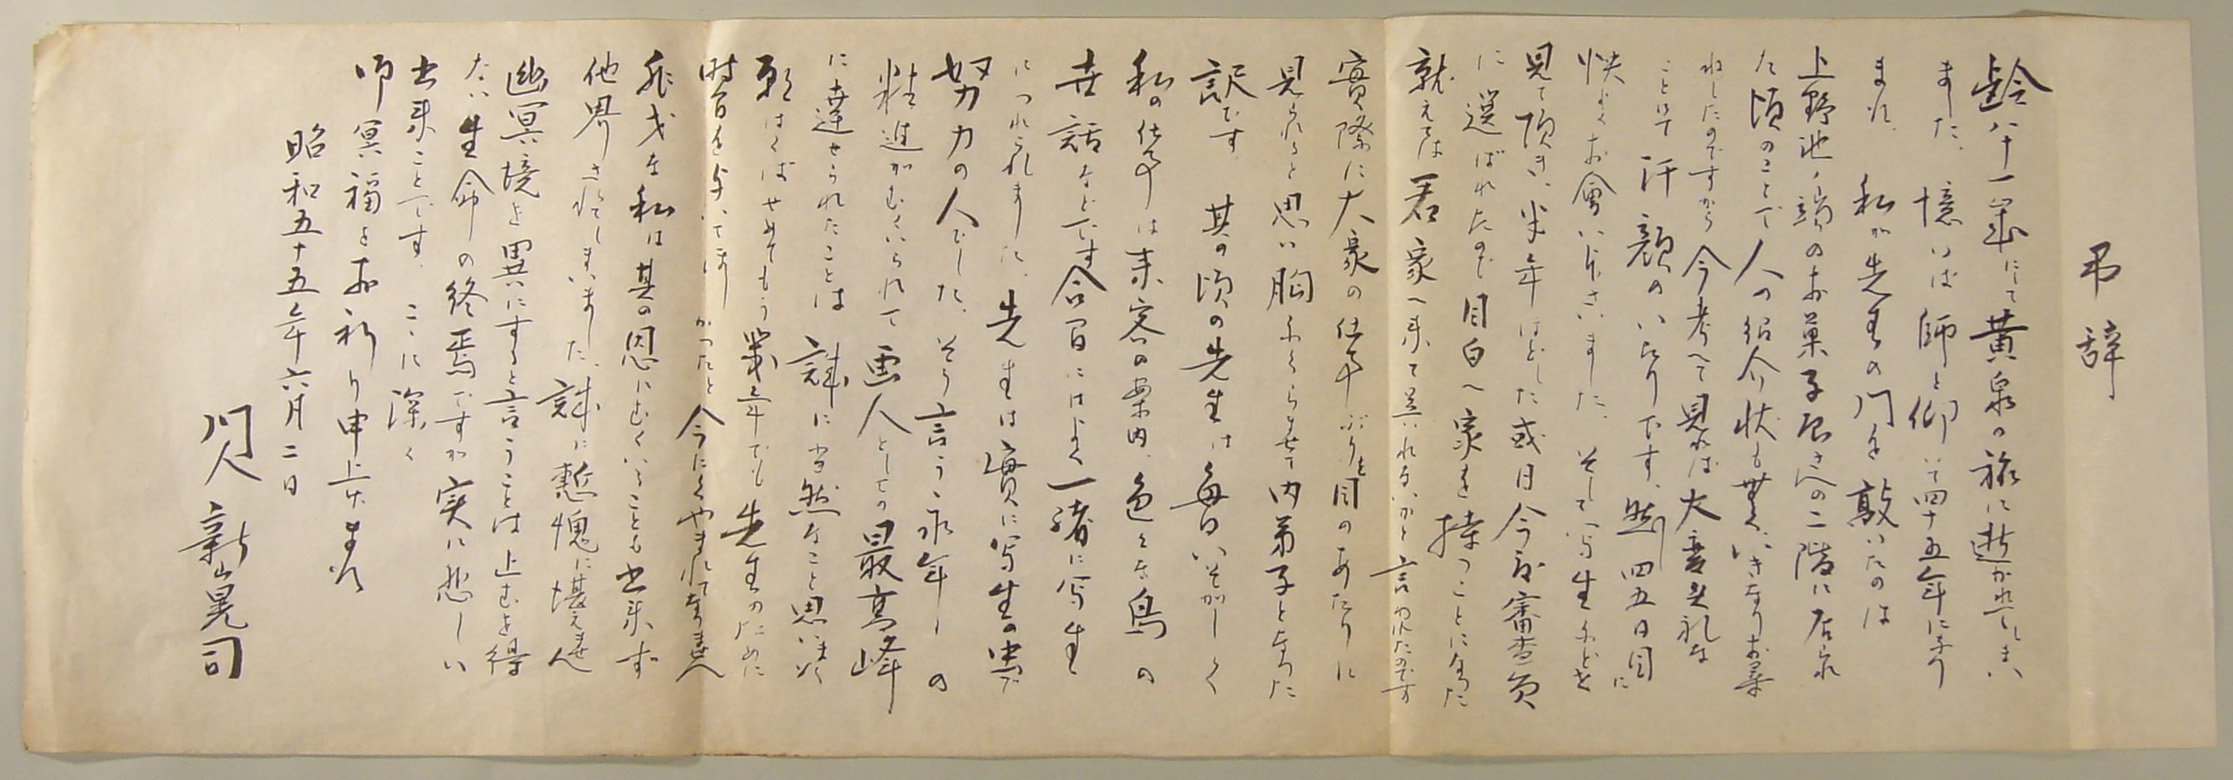 弔辞
齢八十一歳にて黄泉の旅に逝かれてしまい
ました、憶いば師と仰いで四十五年になり
ます、私が先生の門を敲いたのは
上野池ノ端のお菓子屋さんの二階に居られ
た頃のことで人の紹介状も無くいきなりお尋
ねしたのですから今考へて見れば大変失礼な
ことにて汗顔のいたりです、然し四五日目に
快くお会い下さいました、そして写生などを
見て頂き、半年ほどした或日今度審査員
に選ばれたので目白へ家を持つことになった
就えては君家へ来て呉れないかと言われたのです
実際に大家の仕事ぶりを目のあたりに
見られると思い胸ふくらませて内弟子となった
訳です 其の頃の先生は毎日いそがしく
私の仕事は来客の案内、色々な鳥の
世話などです合間にはよく一緒に写生
につれられました、先生は實に写生の虫で
努力の人でした、そう言う永年の
精進がむくいられて画人としての最高峰
に達せられたことは誠に当然なこと思います
願はくばせめてもう数年でも先生のために
時間を与へてほしかったと今にくやまれてなりません
非才な私は其の恩にむくいることも出来ず
他界されてしまいました、誠に慙愧に堪えません
幽冥境を異にすると言うことは止むを得
ない生命の終焉ですが実に悲しい
出来ことです、ここに深く
御冥福をお祈り申上げます
昭和五十五年六月二日
門人 新山晃司